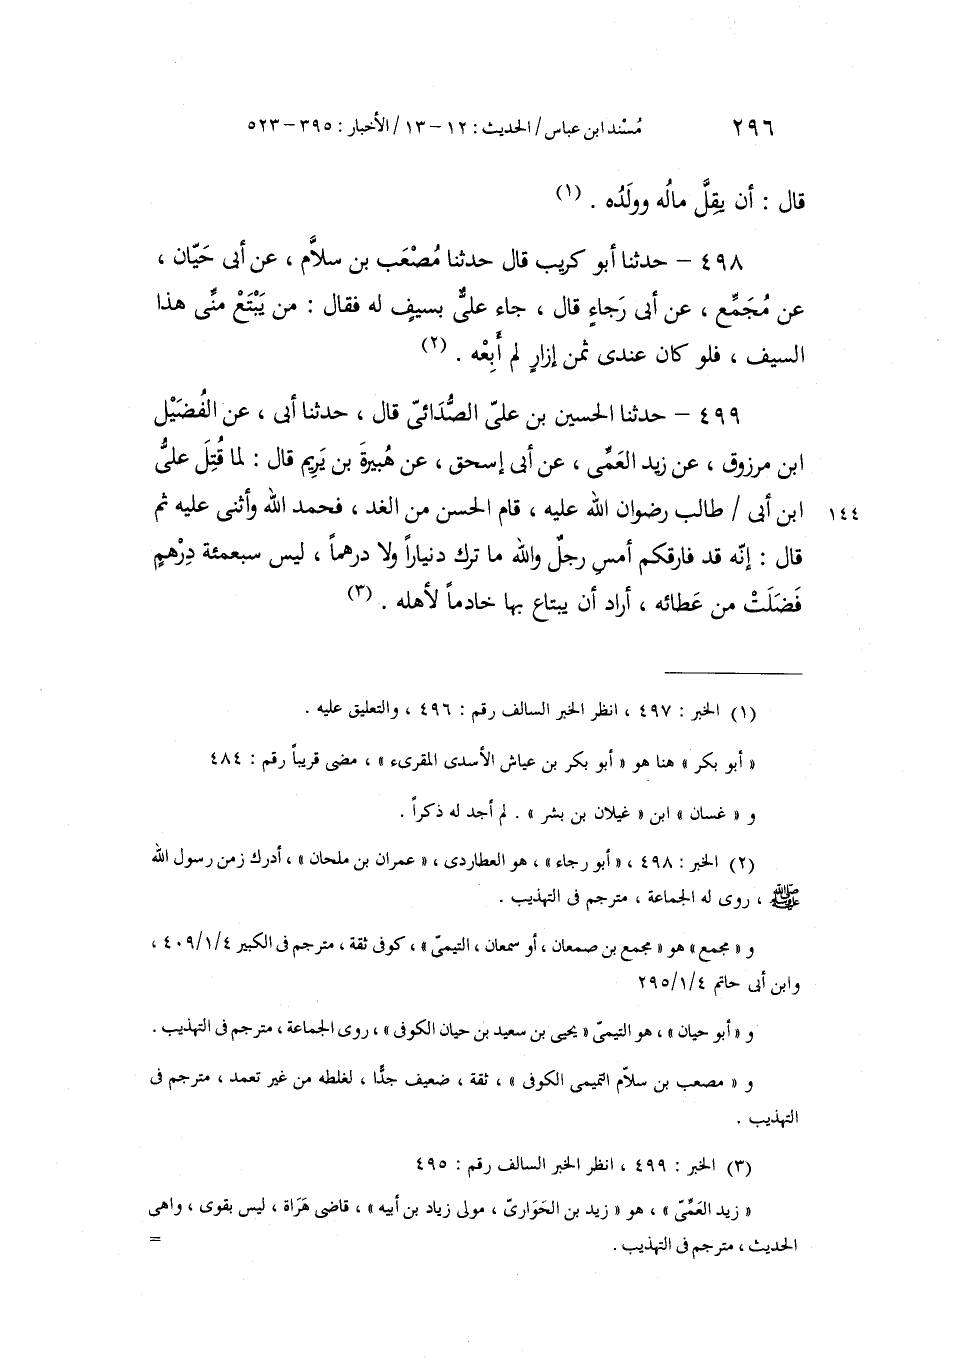 ٢٩٦ مُسْند ابن عباس / الحديث : ١٢ – ١٣ / الأخبار : ٣٩٥ – ٥٢٣
قال : أن يقِلَّ مالُه وولَدُه . (١)
٤٩٨ – حدثنا أبو كريب قال حدثنا مُصْعَب بن سلاَّم ، عن أبى حَيّان ،
عن مُجَمِّع ، عن أبى رَجاءٍ قال ، جاء علىٌّ بسيفٍ له فقال : من يَبْتَعْ منِّى هذا
السيف ، فلو كان عندى ثمن إزارٍ لم أَبِعْه . (٢)
٤٩٩ – حدثنا الحسين بن علىّ الصُّدَائىّ قال ، حدثنا أبى ، عن الفُضَيْل
ابن مرزوق ، عن زيد العَمِّى ، عن أبى إسحق ، عن هُبيرةَ بن يَرِيم قال : لما قُتِلَ علىُّ
ابن أبى / طالب رضوان الله عليه ، قام الحسن من الغد ، فحمد الله وأثنى عليه ثم ١٤٤
قال : إنّه قد فارقكم أمسِ رجلٌ والله ما ترك دنياراً ولا درهماً ، ليس سبعمئة دِرْهمٍ
فَضَلَتْ من عَطائه ، أراد أن يبتاع بها خادماً لأهله . (٣)
(١) الخبر : ٤٩٧ ، انظر الخبر السالف رقم : ٤٩٦ ، والتعليق عليه .
« أبو بكر » هنا هو « أبو بكر بن عياش الأسدى المقرىء » ، مضى قريباً رقم : ٤٨٤
و « غسان » ابن « غيلان بن بشر » . لم أجد له ذكراً .
(٢) الخبر : ٤٩٨ ، « أبو رجاء » ، هو العطاردى ، « عمران بن ملحان » ، أدرك زمن رسول الله
ﷺ ، روى له الجماعة ، مترجم فى التهذيب .
و « مجمع » هو « مجمع بن صمعان ، أو سمعان ، التيمىّ » ، كوفى ثقة ، مترجم فى الكبير ٤/١/٤٠٩ ،
وابن أبى حاتم ٤/١/٢٩٥
و « أبو حيان » ، هو التيمىّ « يحيى بن سعيد بن حيان الكوفى » ، روى الجماعة ، مترجم فى التهذيب .
و « مصعب بن سلاّم التميمى الكوفى » ، ثقة ، ضعيف جدًّا ، لغلطه من غير تعمد ، مترجم فى
التهذيب .
(٣) الخبر : ٤٩٩ ، انظر الخبر السالف رقم : ٤٩٥
« زيد العَمِّىّ » ، هو « زيد بن الحَوَارىّ ، مولى زياد بن أبيه » ، قاضى هَرَاة ، ليس بقوى ، واهى
الحديث ، مترجم فى التهذيب . =